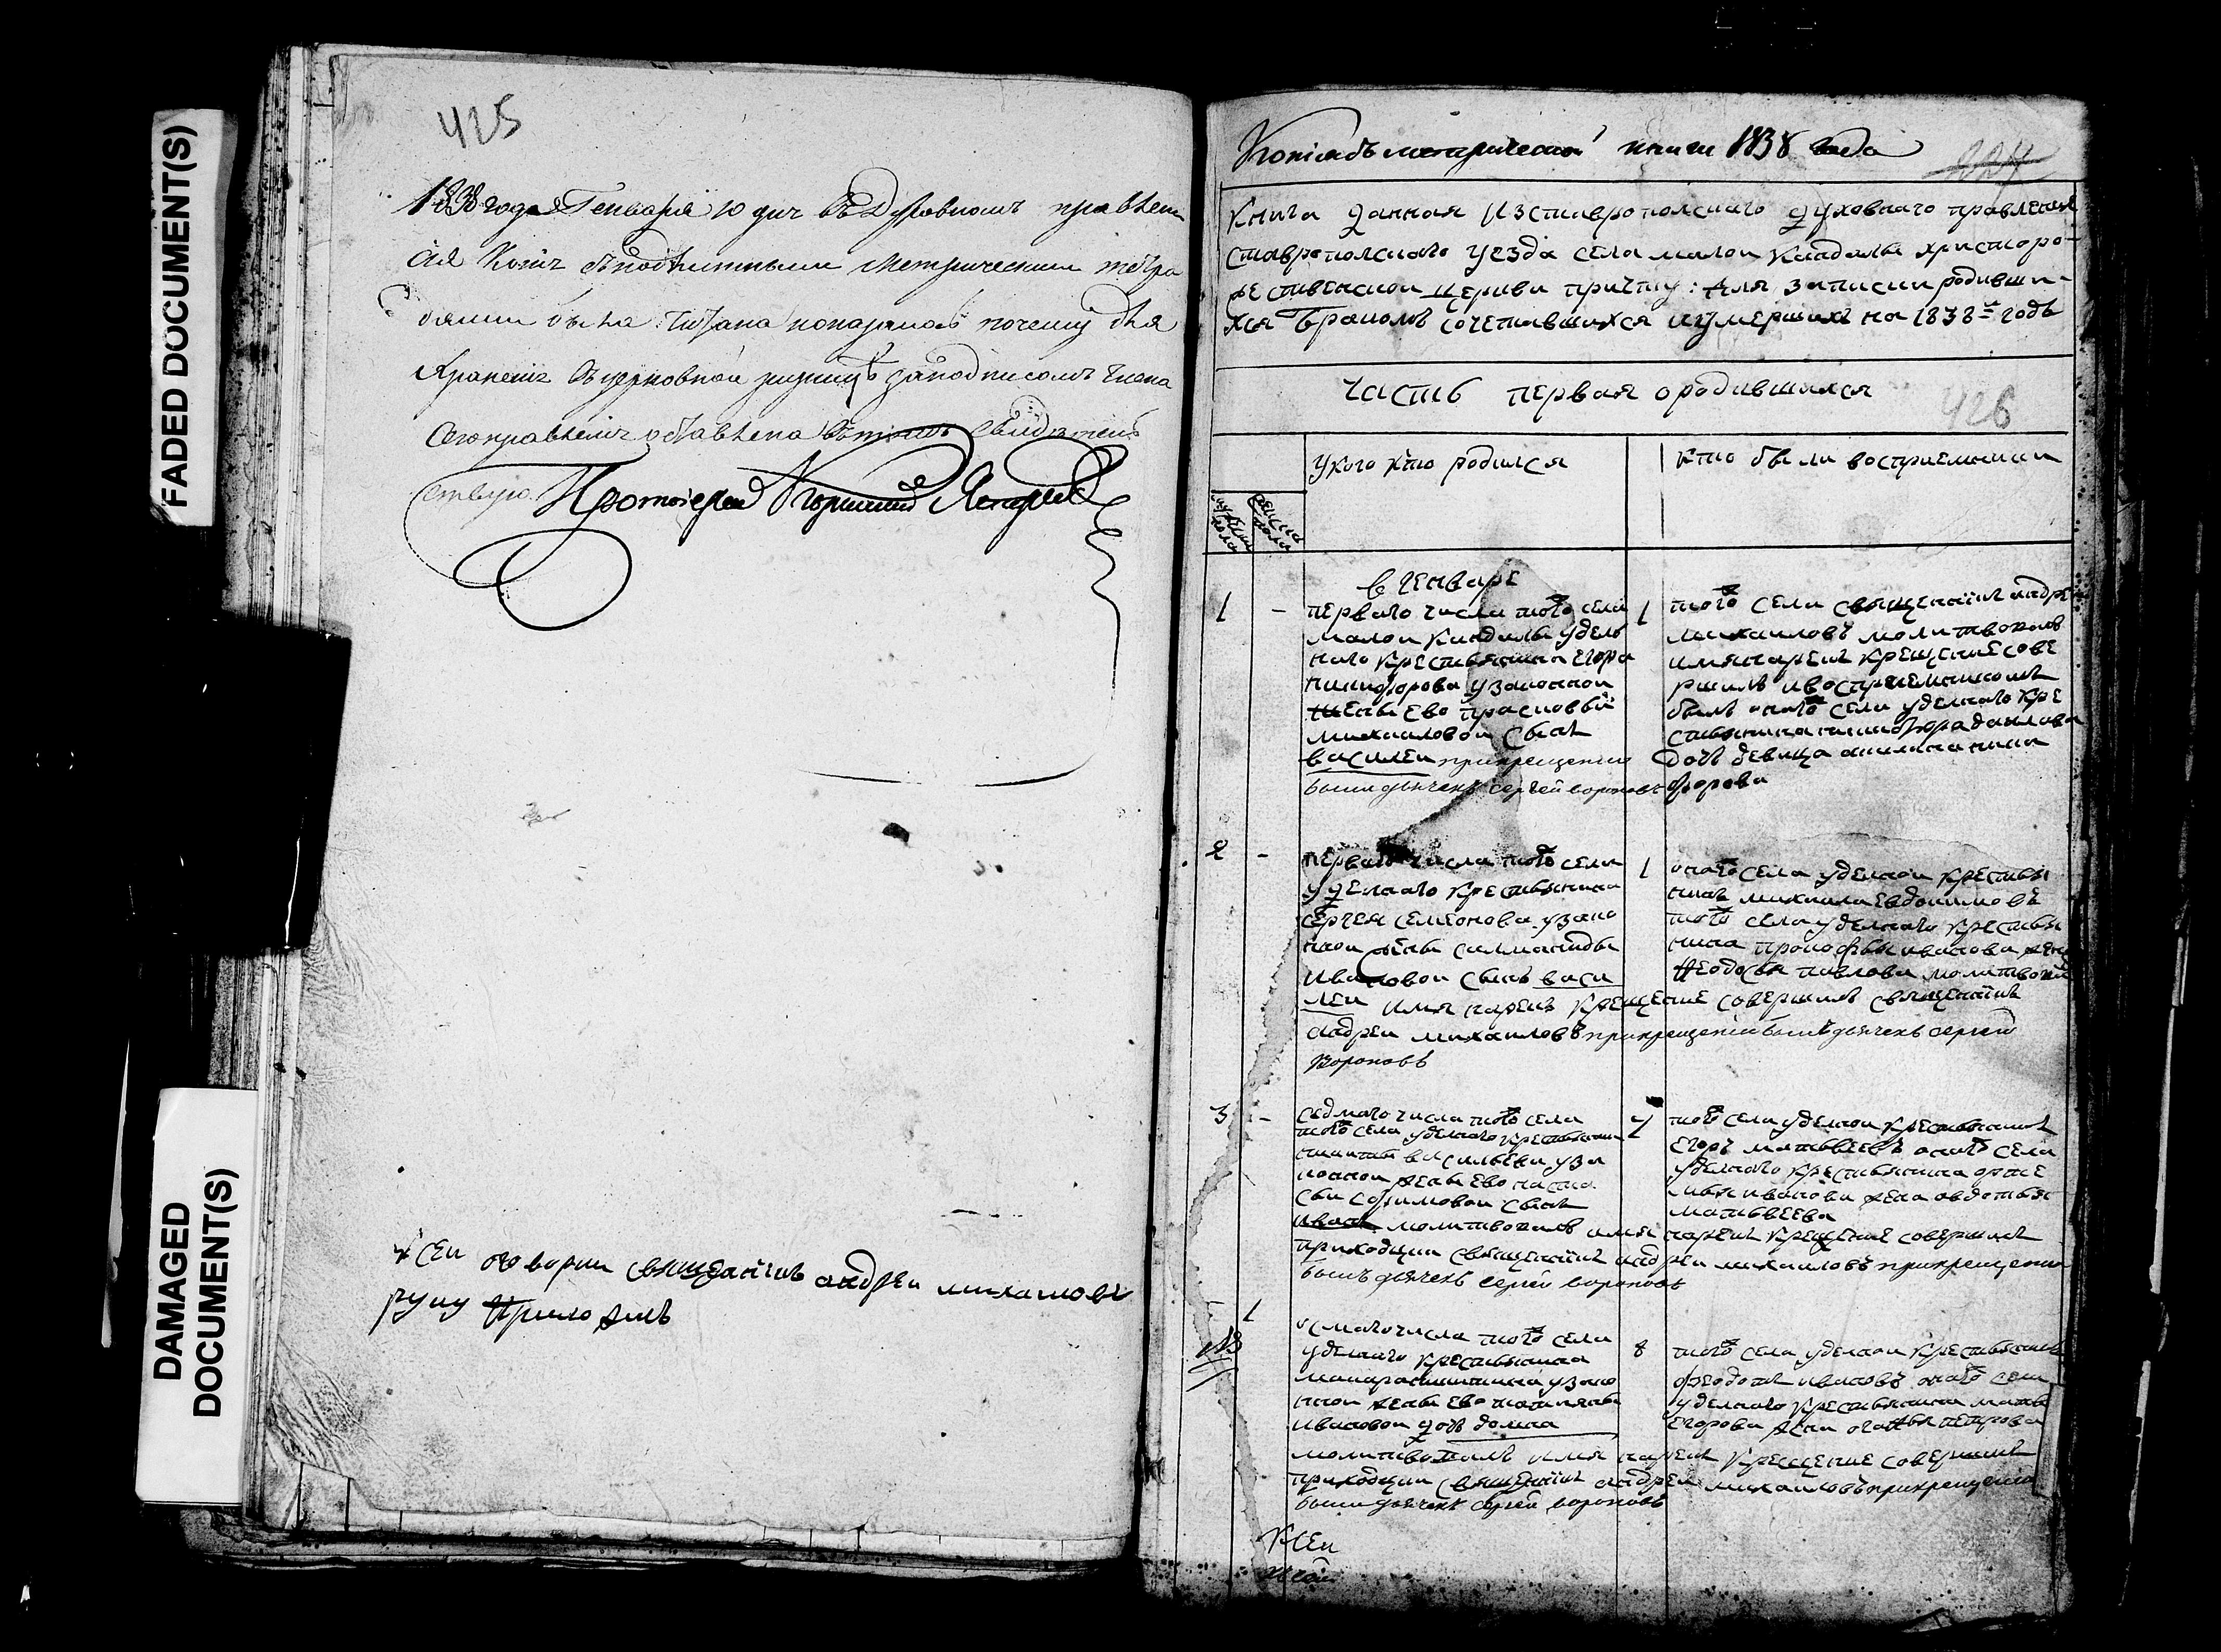 FADED DOCUMENT(S)
DAMAGED
DOCUMENT(S)
425
1838 года Генваря 10 дня въ Духовномъ правлен
сія Копія съ подлинными метрическими тетра
дями была читана почему для
храненія въ церковной ризницѣ за подписомъ члена
сего правленія оставлена въ томъ свидѣтель
ствую Протоіерей
К сеи священникъ андреи михаиловъ
руку приложилъ
Копія съ метрической книги 1838 года
Книга данная Изставропольскаго духовнаго правления
Ставропольскаго уезда села малои Кандалы христоро-
жественскои церкви причту: для записки родивши-
хся браком сочетавшихся иумершихъ на 1838й годъ
Часть первая ородившихся
426
укого кто родился
кто были восприемники
в Генваре
1 - перваго числа того села
малои Кандалы удель
наго крестьянина Егора
никифорова узаконнои
жены Ево прасковьи
михаиловои сынъ
василеи при крещении
были дьячекъ сергей вороновъ
1 того села священникъ андре
михаиловъ молитвовалъ
имянарекъ крещение сове
ршилъ ивосприемникомъ
былъ оного села уделнаго кре
стьянина никифора данилова
дочь девица акилина ники
форова
2 - перваго числа того села
уделнаго крестьянина
сергея семенова узако
ннои жены
Ивановои сынъ васи
леи имя нарекъ крещение совершилъ священникъ
андреи михаиловъ при крещении былъ дьячекъ сергей
Вороновъ
1 оного села уделнои крестья
нинъ михаила Евдокимовъ
того села уделнаго крестья
нина прокофья иванова жена
Феодосья павлова молитвовалъ
3 - седмаго числа того села
того села уделнаго крестьянина
никиты васильева уза
коннои жены Ево наста
сьи Ефимовои сынъ
иванъ молитвовалъ имя нарекъ крещение совершилъ
приходцкии священникъ андреи михаиловъ при крещении
былъ дьячекъ сергей вороновъ
7 того села уделнои крестьянинъ
Егоръ матвеевъ оного села
уделнаго крестьянина арте
мья иванова жена авдотья
матвеева
1
осмаго числа того села
уделнаго крестьянина
макара никитина узако
ннои жены Ево татьяны
ивановои дочь домна
молитвовалъ имя нарекъ крещение совершилъ
приходцкии священникъ андреи михаиловъ при крещении
были дьячекъ сергей вороновъ
8 того села уделнои крестьянинъ
феодотъ ивановъ оного села
уделнаго крестьянина матв
Егорова жена агафья петрова
К сеи